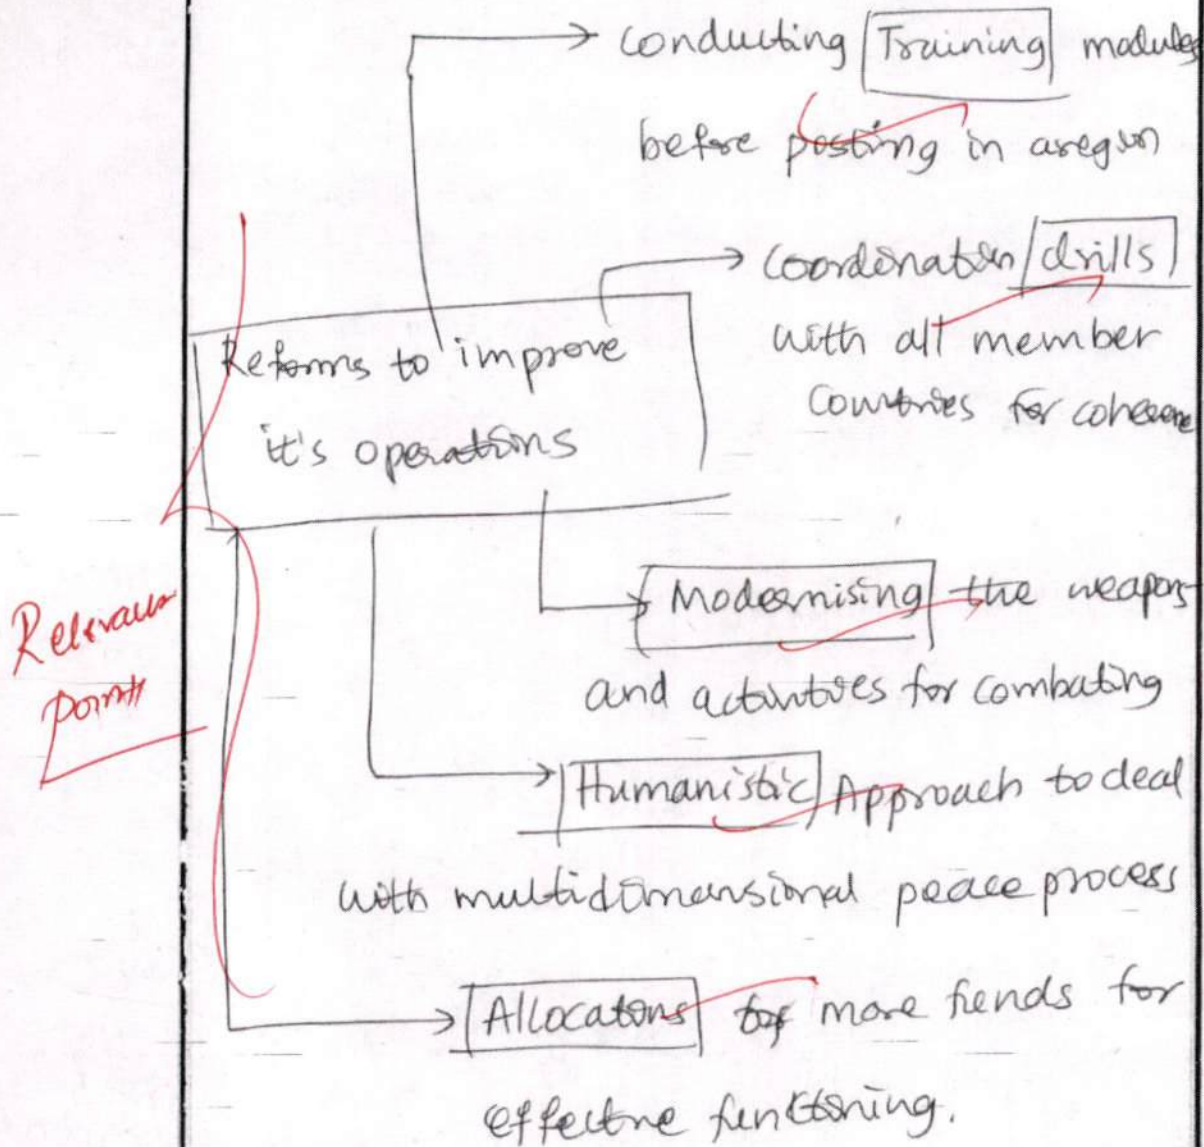 Conducting Training modules
before posting in aregion
Coordination drills
with all member
Countries for coherene
Reforms to improve
it's operations
Modernising the weapons
and activities for combating
Relevant
points
Humanistic Approach to deal
with multidimensional peace process
Allocations for more funds for
effective functioning.